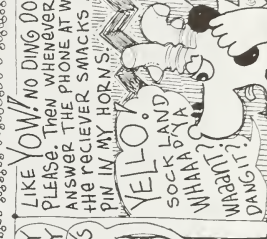 LIKE YOW! NO DING DO
PLEASE. THEN WHENEVER
ANSWER THE PHONE AT W
the RECIEVER SMACKS
PIN IN MY HORNS.
YELLO!
SOCK LAND
WHAAA D'YA
WAAANT!?
DANGIT!?